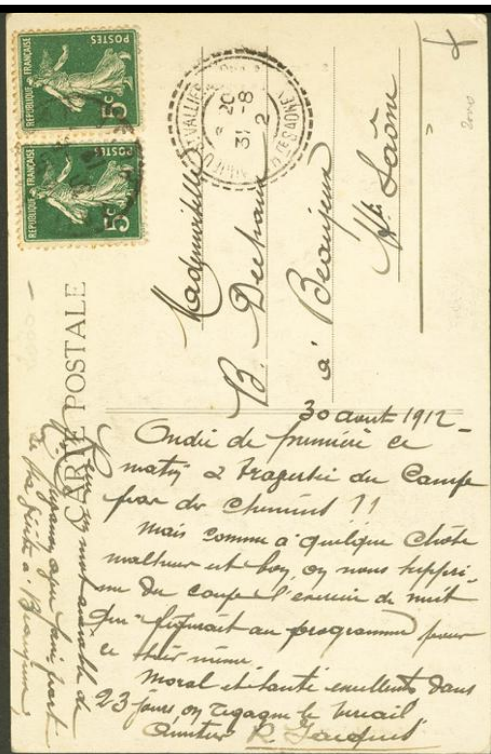 REPUBLIQUE FRANÇAISE
POSTES
5c
REPUBLIQUE FRANÇAISE
POSTES
5c
CARTE POSTALE
20
31 -8
2
Mademoiselle
B.
à Beaujeux
Hte Saône
30 aout 1912 -
Ondée de première ce
matin à du Camp
par de chemins !!
Mais comme à quelque chose
malheur est bon, on nous suppri-
me du coup l'exercice de nuit
qui figurait au programme pour
ce soir même.
Moral et santé excellents dans
23 jours on regagne le bercail
Amitiés R. Jacques
mot aimable de
de sa à Beaujeux